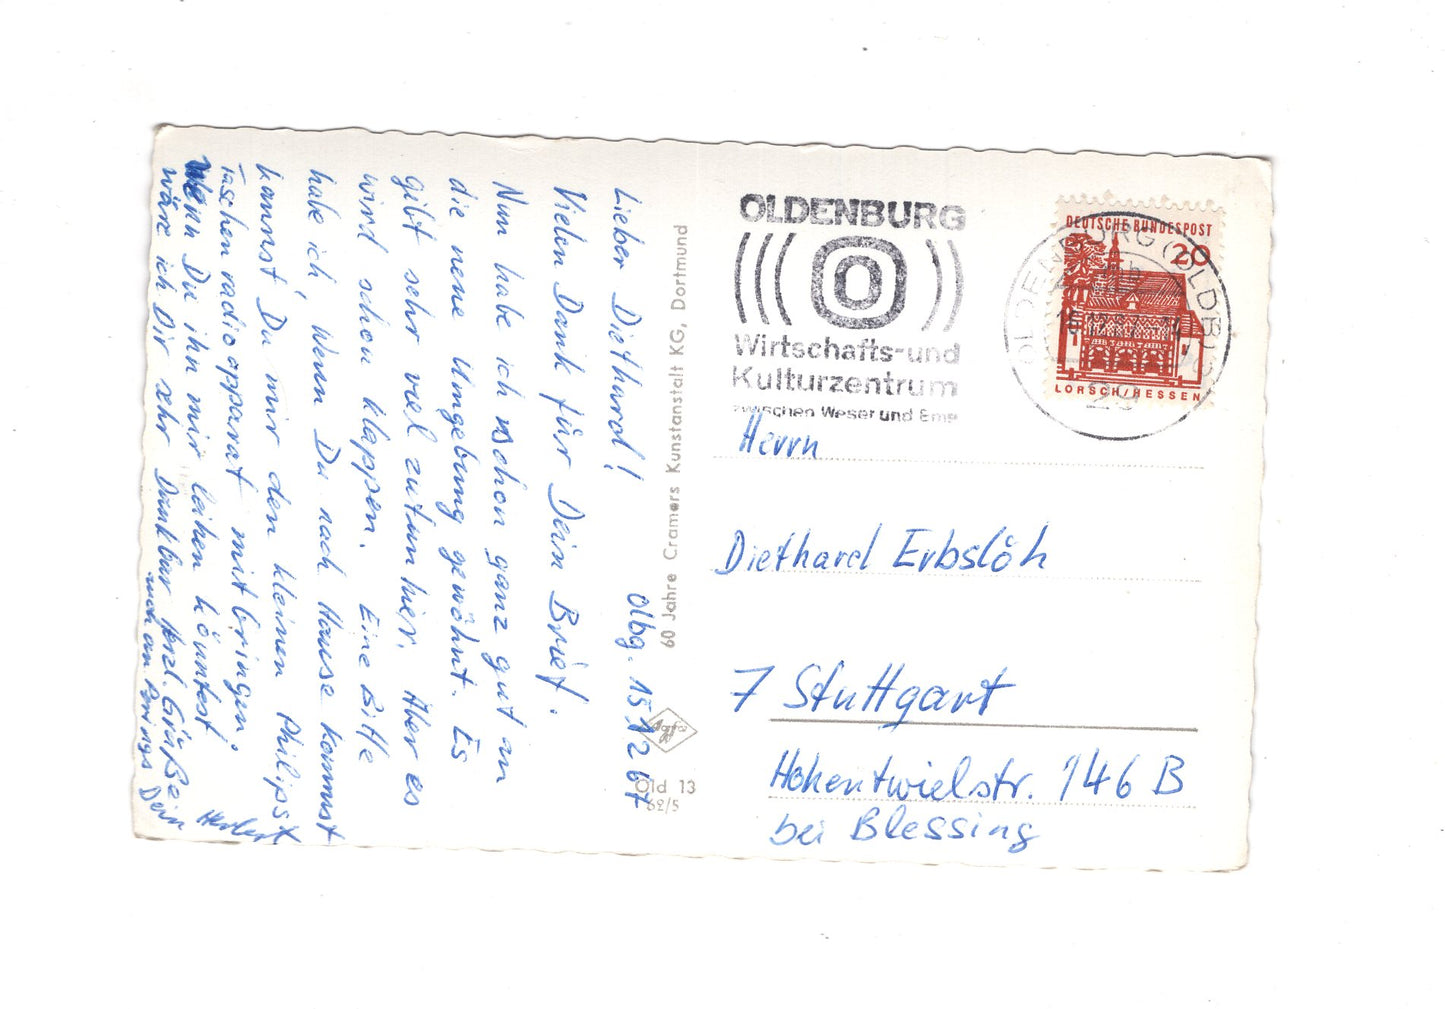 Olbg. 15.12.67
Lieber Diethard!
Vielen Dank für Dein Brief.
Nun habe ich schon ganz gut an
die neue Umgebung gewöhnt. Es
gibt sehr viel zu tun hier. Aber es
wird schon klappen. Eine Bitte
habe ich, Wenn Du nach Hause kommst
kannst Du mir den kleinen Philips
Taschenradioapparat mitbringen.
Wenn Du ihn mir leihen könntest
wäre ich Dir sehr Dankbar Herzl. Grüße
auch an Dein
Herbert
60 Jahre Cramers Kunstanstalt KG, Dortmund
Agfa
Old 13
62/5
OLDENBURG
O
Wirtschafts-und
Kulturzentrum
zwischen Weser und Ems
OLDENBURG (OLDB)
29
DEUTSCHE BUNDESPOST
20
LORSCH/HESSEN
Herrn
Diethard Erbslöh
7 Stuttgart
Hohentwielstr. 146 B
bei Blessing